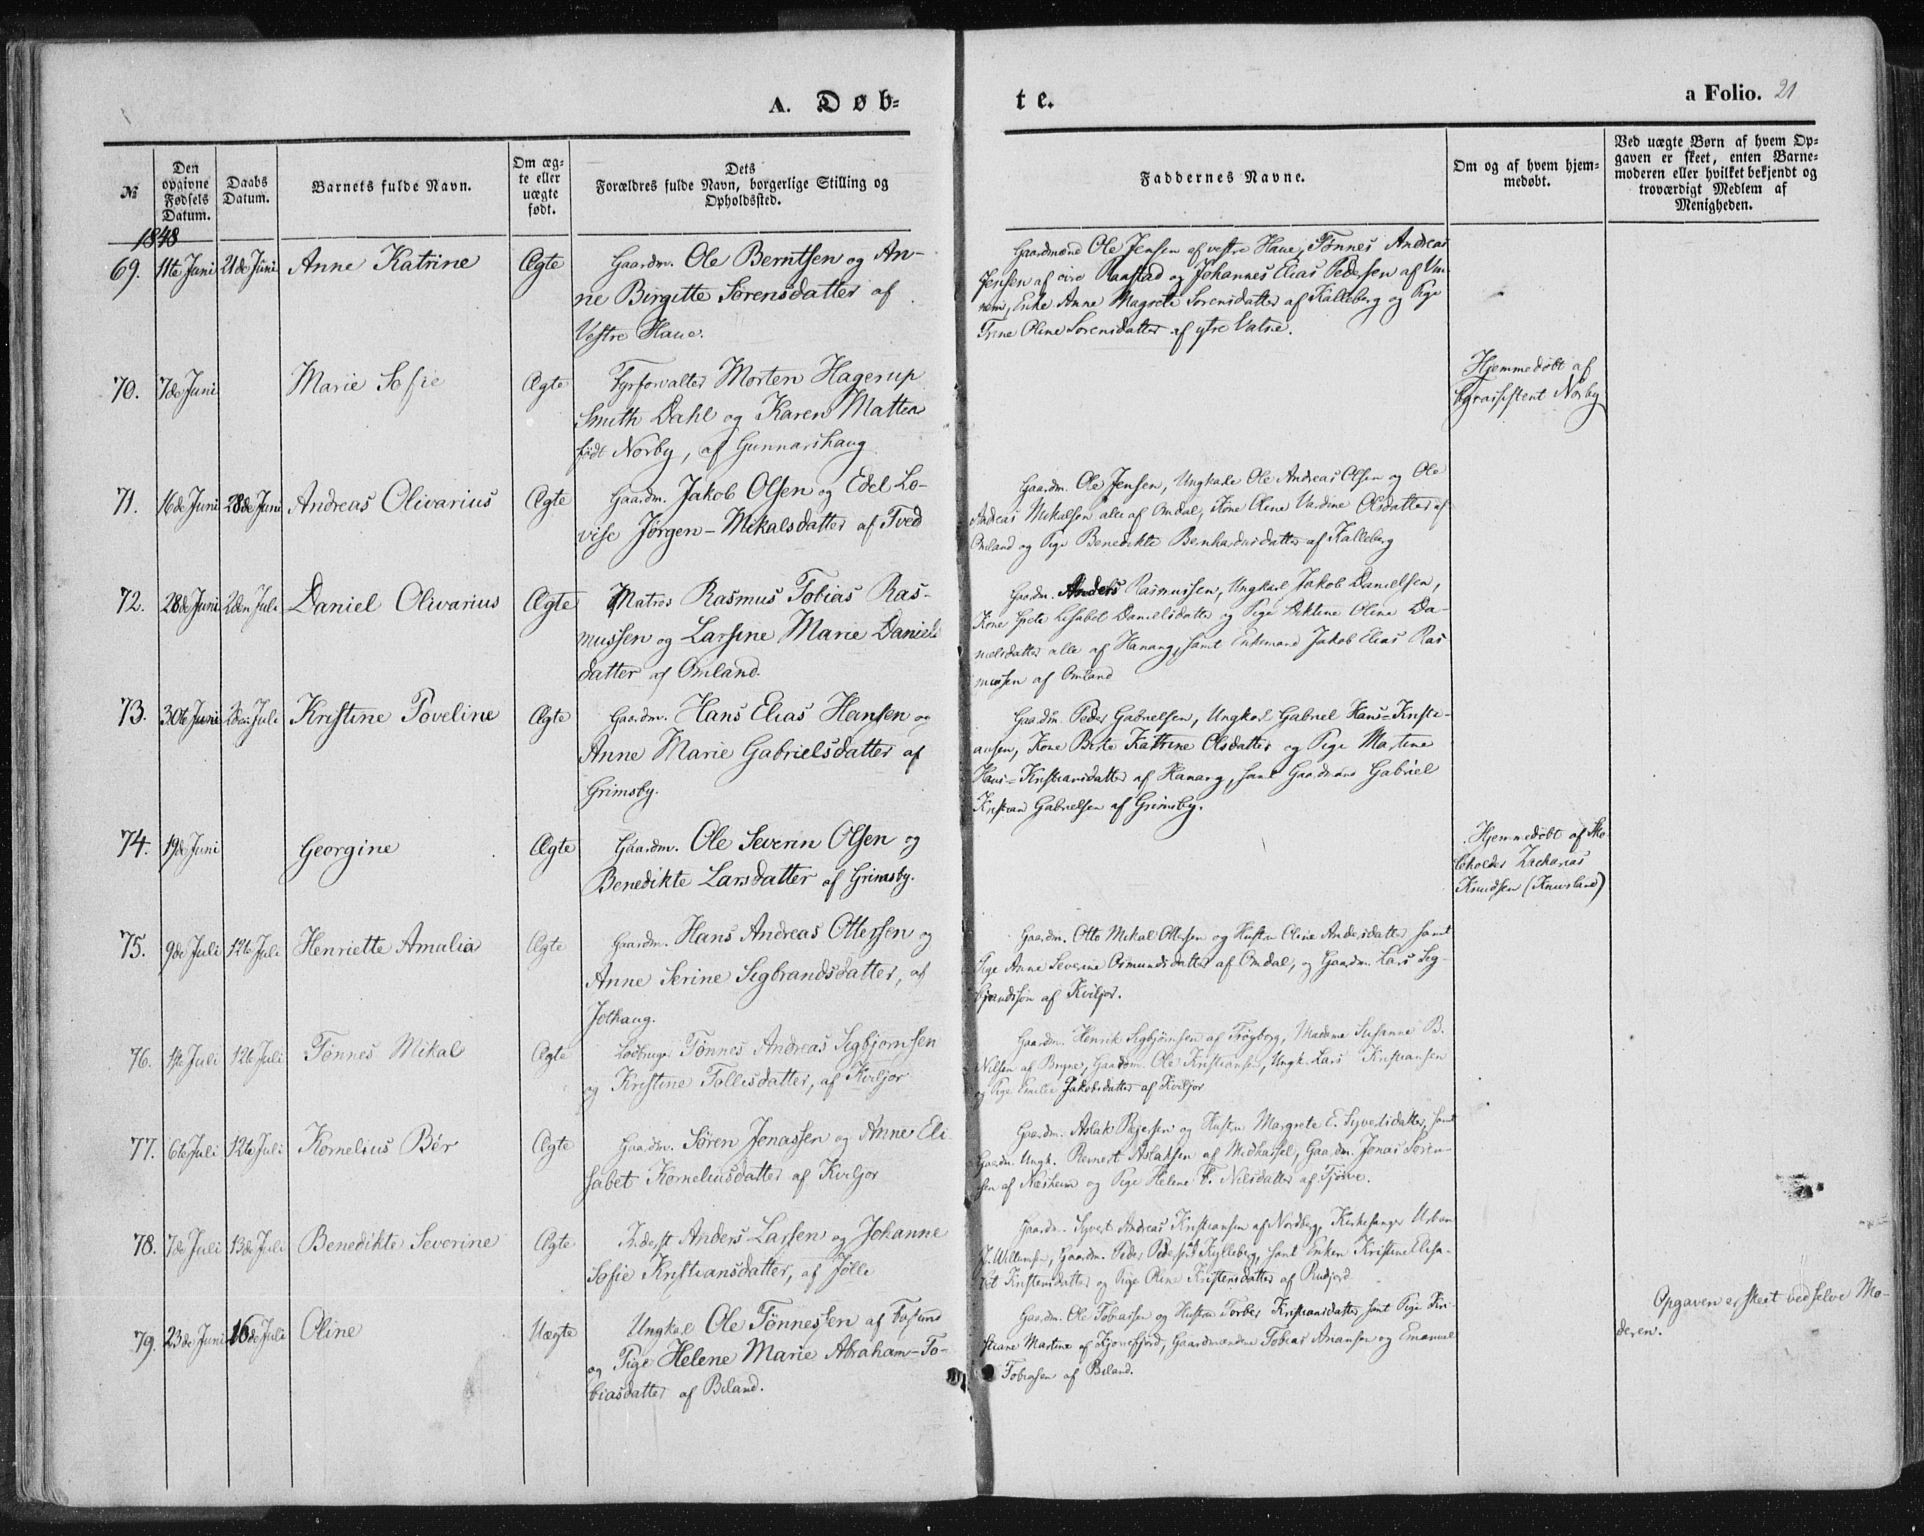 A. Døb-
te.
a Folio. 21
№
Den opgivne Fødsels Datum.
Daabs Datum.
Barnets fulde Navn.
Om ægte eller uægte født.
Dets
Forældres fulde Navn, borgerlige Stilling og
Opholdssted.
Faddernes Navne.
Om og af hvem hjem-
medøbt.
Ved uægte Børn af hvem Op-
gaven er skeet, enten Barne-
moderen eller hvilket bekjendt og
troværdigt Medlem af
Menigheden.
1848
69. 11te Juni 21de Juni Anne Katrine Ægte Gaardm. Ole Berntsen og An-
ne Birgitte Sørensdatter af
Vestre Haue.
Gaardmænd Ole Jensen af vestre Haue, Tønnes Andreas
Jensen af Raustad og Johannes Elias Pedersen af
Enke Anne Magrete Sørensdatter af Kalleberg og Pige
Trine Oline Sørensdatter af ytre Vatne.
70. 7de Juni Marie Sofie Ægte Fyrforvalter Morten Hagerup
Smith Dahl og Karen Mattea
født Norby, af Gunnarshaug
Hjemmedøbt af
Norby
71. 16de Juni 28de Juni Andreas Olivarius Ægte Gaardm. Jakob Olsen og Edel Lo-
vise Jørgen-Mikalsdatter af Tved
Gaardm. Ole Jensen, Ungkarle Ole Andreas Olsen og Ole
Andreas Mikalsen alle af Omdal, Kone Oline Vardine Olsdatter af
Omland og Pige Benedikte Bernhardusdatter af Kalleberg
72. 28de Juni 2den Juli Daniel Olivarius Ægte Matros Rasmus Tobias Ras-
mussen og Larsine Marie Daniels
datter af Omland.
Gaardm. Anders Rasmussen, Ungkarl Jakob Danielsen,
Kone Grete Lisabet Danielsdatter og Pige Oline Da-
nielsdatter alle af Hanang, samt Enkemand Jakob Elias Ras
mussen af Omland
73. 30te Juni 2den Juli Kristine Toveline Ægte Gaardm. Hans Elias Hansen og
Anne Marie Gabrielsdatter af
Grimsby.
Gaardm. Peder Gabrielsen, Ungkarl Gabriel Hans-Kristi-
ansen, Kone Berte Katrine Olsdatter og Pige Martine
Hans-Kristiansdatter af Hanang, samt Gaardmand Gabriel
Kristian Gabrielsen af Grimsby.
74. 19de Juni Georgine Ægte Gaardm. Ole Severin Olsen og
Benedikte Larsdatter af Grimsby.
Hjemmedøbt af Sko
leholder Zacharias
Knudsen (Knivsland)
75. 9de Juli 12te Juli Henriette Amalia Ægte Gaardm. Hans Andreas Ottersen og
Anne Serine Sigbrandsdatter, af
Jothaug.
Gaardm. Otto Mikal Ottersen og Hustru Oline Andersdatter samt
Pige Anne Severine Osmundsdatter af Omdal, og Gaardm. Lars Sig-
brandsson af Kviljor.
76. 1ste Juli 12te Juli Tønnes Mikal Ægte Lodbruger Tønnes Andreas Sigbjørnsen
og Kristine Tollisdatter, af Kviljor
Gaardm. Henrik Sigbjørnsen af Trøgborg, Madame Susanne B.
Nilsen af Bryne, Gaardm. Ole Kristiansen, Ungk. Lars Kristiansen
og Pige Emilie Jakobsdatter af Kviljor
77. 6te Juli 12te Juli Kornelius Bér Ægte Gaardm. Søren Jonassen og Anne Eli-
sabet Korneliusdatter af Kviljor
Gaardm. Aslak Reiersen og Hustru Margrete E. Syvertsdatter, samt
Ungk. Reinert Aslaksen af Midhassel, Gaardm. Jonas Søren-
sen af Næsheim og Pige Helene F. Nilsdatter af Tjørve.
78. 7de Juli 13de Juli Benedikte Severine Ægte Inderst Anders Larsen og Johanne
Sofie Kristiansdatter, af Jølle
Gaardm. Syvert Andreas Kristiansen af Nordberg, Kirkesanger Urban
J. Willumsen, Gaardm. Peder Pedersen af Kylleberg, samt Enken Kristine Elisa-
bet Kristensdatter og Pige Oline Kristensdatter af Rudjord
79. 23de Juni 16de Juli Oline Uægte Ungkarl Ole Tønnessen af Fosund
og Pige Helene Marie Abraham-To-
biasdatter af Biland.
Gaardm. Ole Tobiassen og Hustru Torber Kristiansdatter, samt Pige Kri-
stiane Martine af Kjørrefjord, Gaardmændene Tobias Anansen og Emanuel
Tobiasen af Biland.
Opgaven er skeet ved selve Mo-
deren.